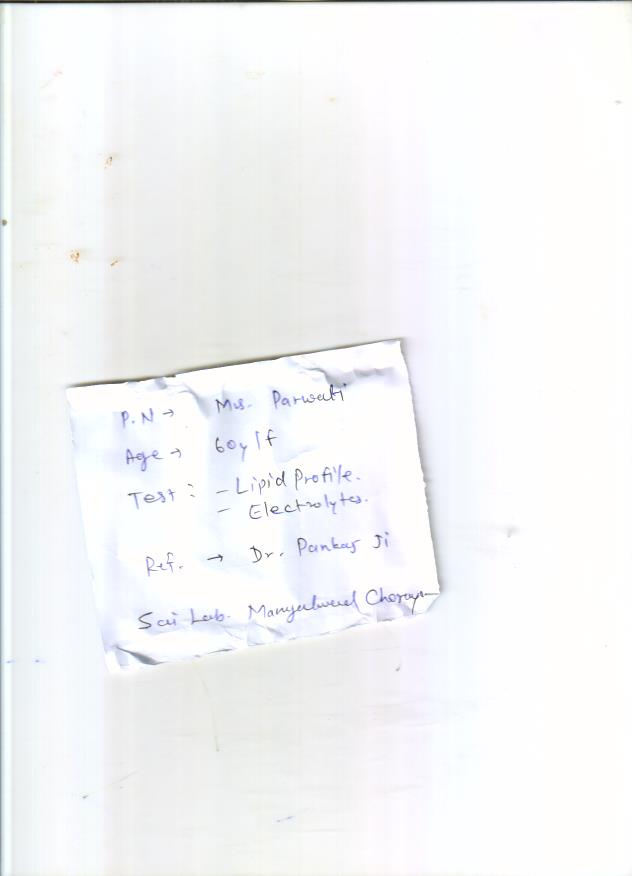 P.N → Mrs. Parwati
Age → 60y/f
Test: - Lipid Profile.
- Electrolytes.
Ref. → Dr. Pankaj Ji
Sai Lab.